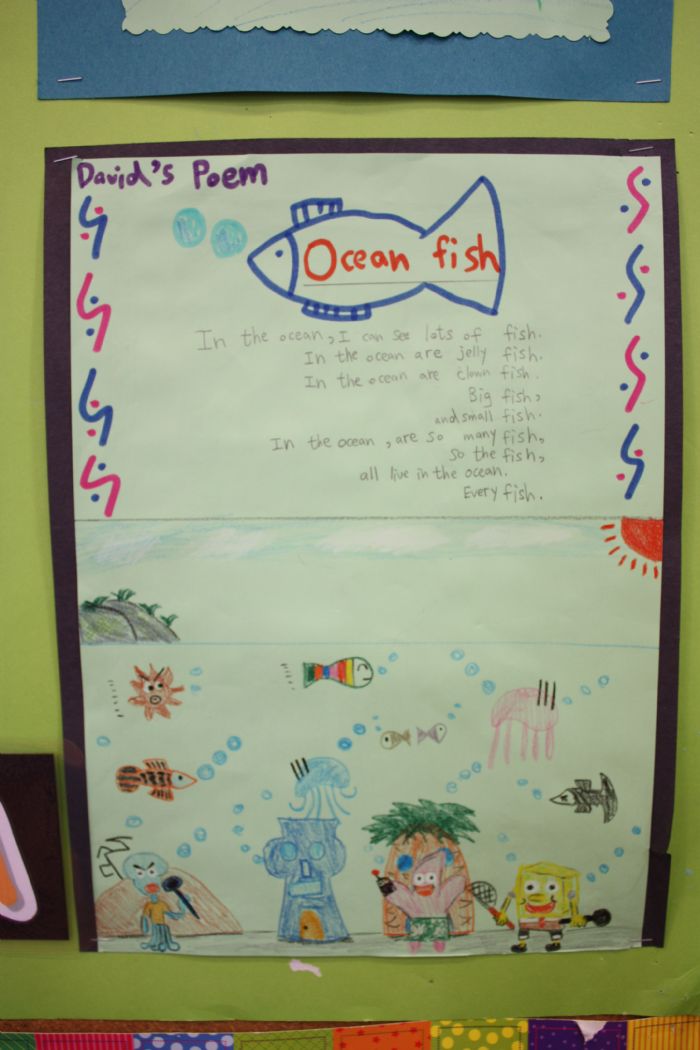 David's Poem
Ocean fish
In the ocean, I can see lots of fish.
In the ocean are jelly fish.
In the ocean are clown fish.
Big fish,
and small fish.
In the ocean, are so many fish,
So the fish,
all live in the ocean.
Every fish.